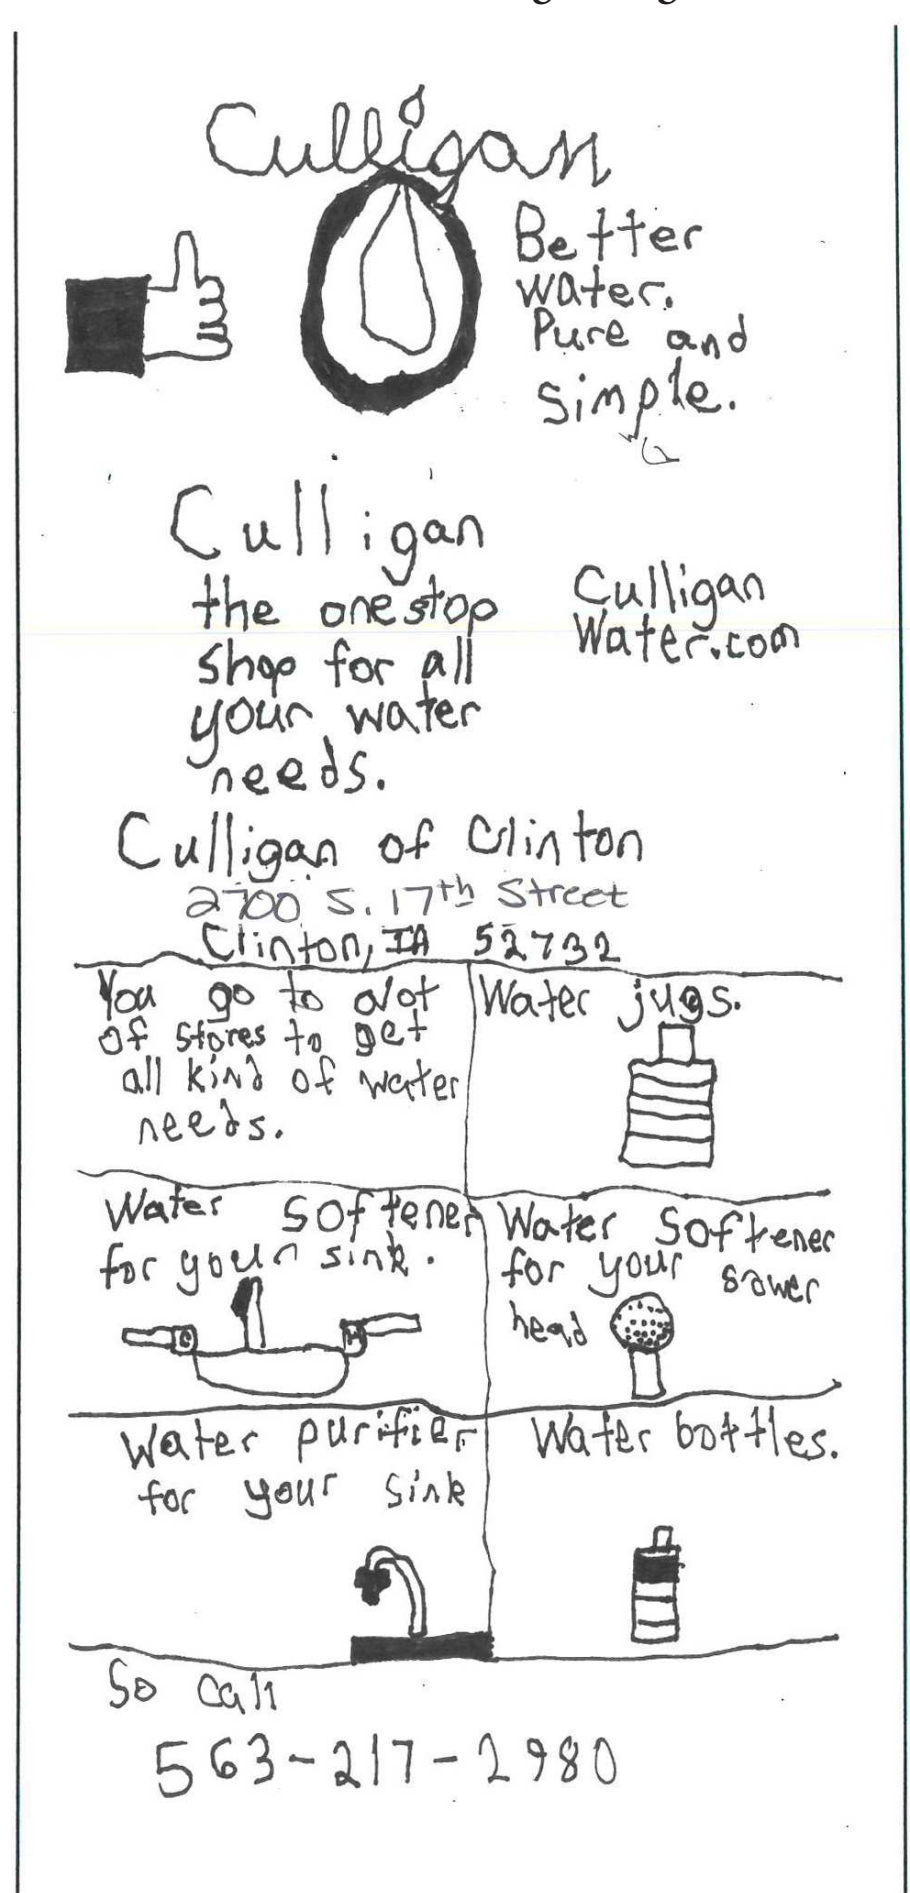 Culligan
Better
water.
Pure and
simple.
Culligan
the one stop
shop for all
your water
needs.
Culligan
Water.com
Culligan of Clinton
2700 S. 17th Street
Clinton, IA 52732
You go to alot
of stores to get
all kind of water
needs.
Water jugs.
Water Softener
for your sink.
C H
Water Softener
for your sower
head
Water purifier
for your sink
Water bottles.
So Call
563-217-2980